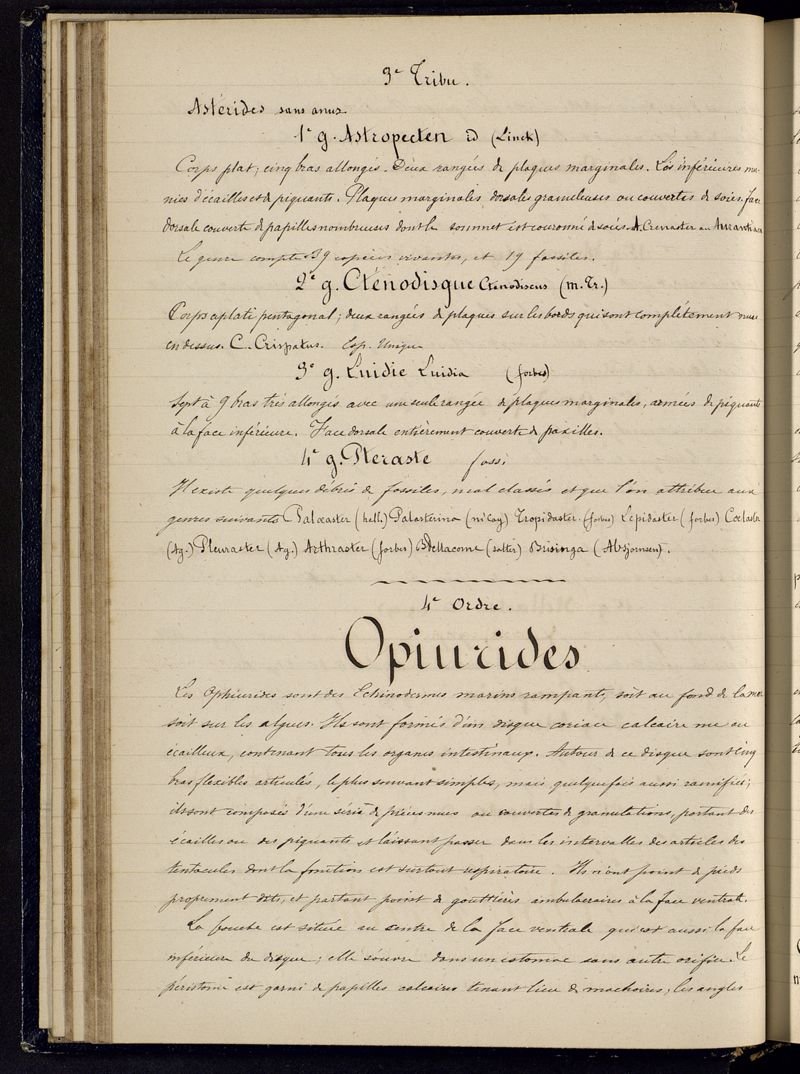 3e Tribu.
Astérides sans anus.
1e g. Astropecten id (Linck)
Corps plat; cinq bras allongés. Deux rangées de plaques marginales. Les inférieures mu-
nies d'écailles et de piquants. Plaques marginales dorsales granuleuses ou couvertes de soies. face
dorsale couverte de papilles nombreuses dont le sommet est couronné de soies. A. Crenaster ou Aurantiacus
Le genre compte 39 espèces vivantes, et 19 fossiles.
2e g. Cténodisque Ctenodiscus (m. Tr.)
Corps aplati pentagonal; deux rangées de plaques sur les bords qui sont complétement nues
en dessus. C. Crispatus. Esp. Unique
3e g. Luidie Luidia (forbes)
Sept à 9 bras très allongés avec une seule rangée de plaques marginales, armées de piquants
à la face inférieure. Face dorsale entièrement couverte de paxilles.
4e g. Pteraste foss:
Il existe quelques débris de fossiles, mal classés et que l'on attribue aux
genres suivants Palœaster (hall.) Palasterina (m'coy) Tropidaster (forbes) Lepidaster (forbes) Cœlaster
(Ag.) Pleuraster (Ag.) Arthraster (forbes) Bdellacoma (salter) Brisinga (Absjornsen).
4e Ordre.
Opiurides
Les Ophiurides sont des Echinodermes marins rampants, soit au fond de la mer
soit sur les algues. Ils sont formés d'un disque coriace calcaire nu ou
écailleux, contenant tous les organes intestinaux. Autour de ce disque sont cinq
bras flexibles articulés, le plus souvent simples, mais quelquefois aussi ramifiés;
ils sont composés d'une série de pièces nues ou couvertes de granulations, portant des
écailles ou des piquants et laissant passer dans les intervalles des articles des
tentacules dont la fonction est surtout respiratoire. Ils n'ont point de pieds
proprement dits, et partant point de gouttières ambulacraires à la face ventrale.
La bouche est située au centre de la face ventrale qui est aussi la face
inférieure du disque; elle s'ouvre dans un estomac sans autre orifice. Le
péristome est garni de papilles calcaires tenant lieu de machoires; les angles